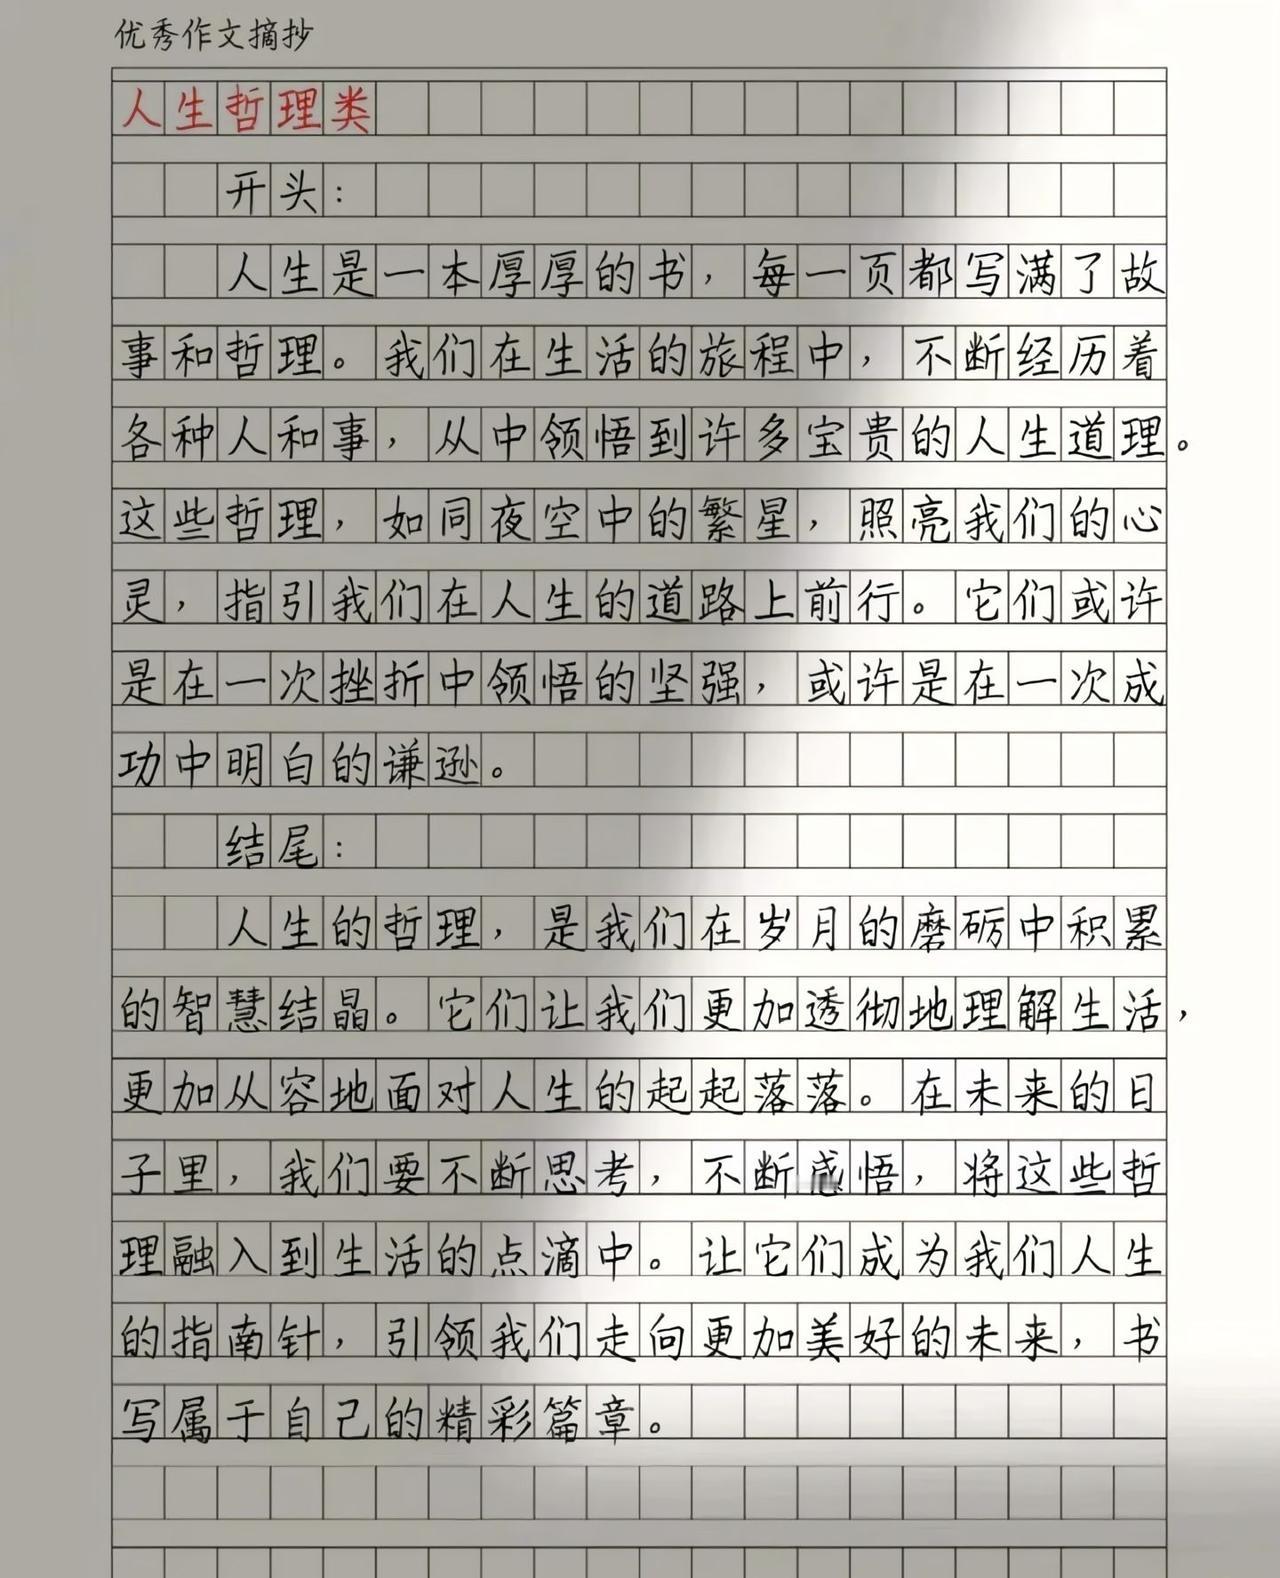 优秀作文摘抄
人生哲理类
开头：
人生是一本厚厚的书，每一页都写满了故
事和哲理。我们在生活的旅程中，不断经历着
各种人和事，从中领悟到许多宝贵的人生道理。
这些哲理，如同夜空中的繁星，照亮我们的心
灵，指引我们在人生的道路上前行。它们或许
是在一次挫折中领悟的坚强，或许是在一次成
功中明白的谦逊。
结尾：
人生的哲理，是我们在岁月的磨砺中积累
的智慧结晶。它们让我们更加透彻地理解生活，
更加从容地面对人生的起起落落。在未来的日
子里，我们要不断思考，不断感悟，将这些哲
理融入到生活的点滴中。让它们成为我们人生
的指南针，引领我们走向更加美好的未来，书
写属于自己的精彩篇章。